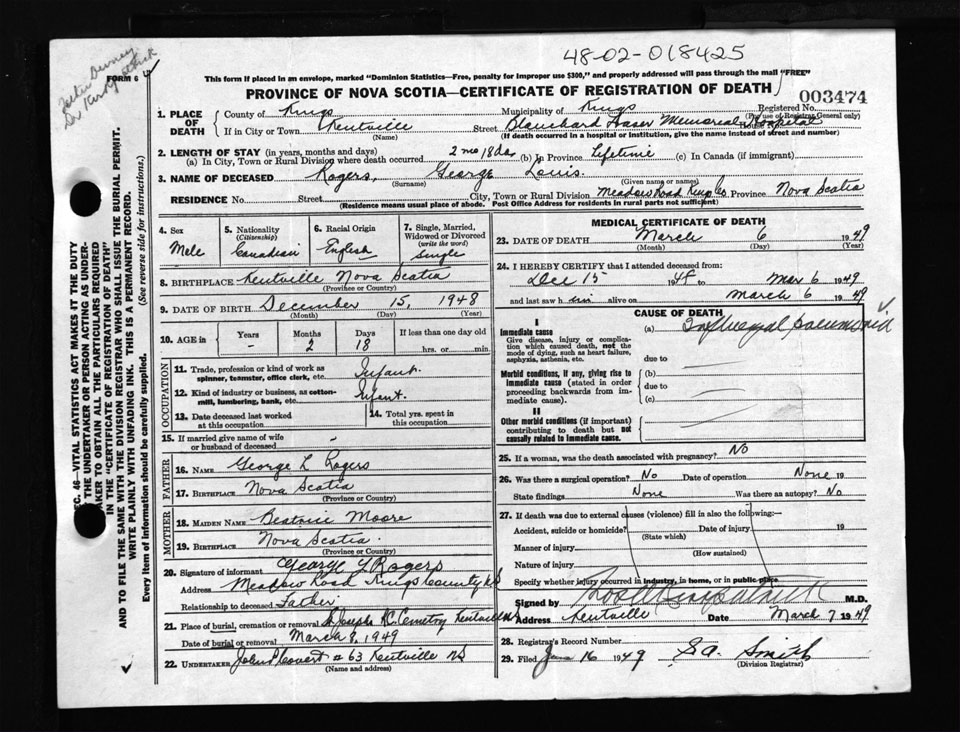 48-02-018425
Letter
Dr Kirkpatrick
FORM 6
This form if placed in an envelope, marked "Dominion Statistics—Free, penalty for improper use $300," and properly addressed will pass through the mail "FREE"
PROVINCE OF NOVA SCOTIA—CERTIFICATE OF REGISTRATION OF DEATH
003474
1. PLACE OF DEATH County of Kings Municipality of Kings Registered No. (For use of Registrar General only)
If in City or Town Kentville (Name) Street Blanchard Fraser Memorial Hospital House No.
(If death occurred in a hospital or institution, give the name instead of street and number)
2. LENGTH OF STAY (in years, months and days)
(a) In City, Town or Rural Division where death occurred 2 mo 18 da (b) In Province Lifetime (c) In Canada (if immigrant)
3. NAME OF DECEASED Rogers, (Surname) George Louis. (Given name or names)
RESIDENCE No. Street City, Town or Rural Division Meadow Road Kings Co Province Nova Scotia
(Residence means usual place of abode. Post Office Address for residents in rural parts not sufficient)
4. Sex Male
5. Nationality (Citizenship) Canadian
6. Racial Origin English
7. Single, Married, Widowed or Divorced (write the word) Single
8. BIRTHPLACE Kentville Nova Scotia
(Province or Country)
9. DATE OF BIRTH December 15, 1948
(Month) (Day) (Year)
10. AGE in Years - Months 2 Days 18 If less than one day old hrs. or min.
OCCUPATION
11. Trade, profession or kind of work as spinner, teamster, office clerk, etc. Infant.
12. Kind of industry or business, as cotton-mill, lumbering, bank, etc. Infant.
13. Date deceased last worked at this occupation
14. Total yrs. spent in this occupation
15. If married give name of wife or husband of deceased -
FATHER
16. NAME George L Rogers
17. BIRTHPLACE Nova Scotia
(Province or Country)
MOTHER
18. MAIDEN NAME Beatrice Moore
19. BIRTHPLACE Nova Scotia.
(Province or Country)
20. Signature of informant George L Rogers
Address Meadow Road Kings County NS
Relationship to deceased Father
21. Place of burial, cremation or removal St Josephs RC Cemetry Kentville NS
Date of burial or removal March 8, 1949
22. UNDERTAKER John P Covert # 63 Kentville NS
(Name and address)
MEDICAL CERTIFICATE OF DEATH
23. DATE OF DEATH March 6 1949
(Month) (Day) (Year)
24. I HEREBY CERTIFY that I attended deceased from:
Dec 15 1948 to Mar 6 1949
and last saw him alive on March 6 1949
CAUSE OF DEATH
I
Immediate cause
Give disease, injury or complication which caused death, not the mode of dying, such as heart failure, asphyxia, asthenia, etc.
(a) Influenzal pneumonia
due to
Morbid conditions, if any, giving rise to immediate cause (stated in order proceeding backwards from immediate cause).
(b)
due to
(c)
II
Other morbid conditions (if important) contributing to death but not causally related to immediate cause.
25. If a woman, was the death associated with pregnancy? No
26. Was there a surgical operation? No Date of operation None 19
State findings None Was there an autopsy? No
27. If death was due to external causes (violence) fill in also the following:—
Accident, suicide or homicide? Date of injury 19
(State which)
Manner of injury
(How sustained)
Nature of injury
Specify whether injury occurred in industry, in home, or in public place
Signed by M.D.
Address Kentville Date March 7 1949
28. Registrar's Record Number
29. Filed June 16 1949 S.A. Smith
(Division Registrar)
SEC. 46—VITAL STATISTICS ACT MAKES IT THE DUTY
OF THE UNDERTAKER OR PERSON ACTING AS UNDER-
TAKER TO OBTAIN ALL THE PARTICULARS REQUIRED
IN THE "CERTIFICATE OF REGISTRATION OF DEATH"
AND TO FILE THE SAME WITH THE DIVISION REGISTRAR WHO SHALL ISSUE THE BURIAL PERMIT.
WRITE PLAINLY WITH UNFADING INK. THIS IS A PERMANENT RECORD.
Every item of information should be carefully supplied. (See reverse side for instructions.)